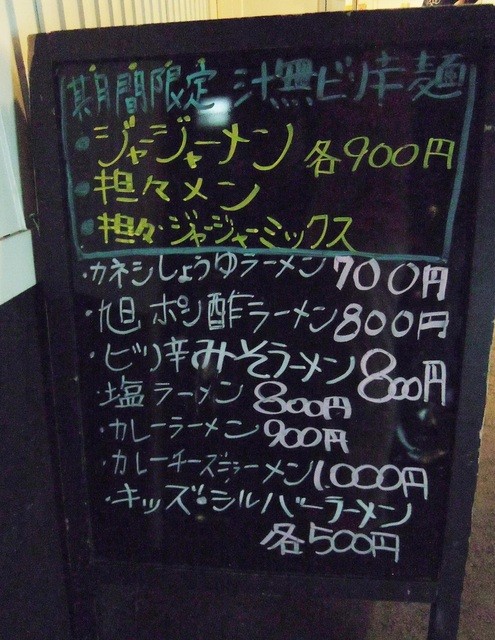 期間限定 汁無ピリ辛麺
・ジャージャーメン 各900円
・担々メン
・担々・ジャージャーミックス
・カネシしょうゆラーメン 700円
・旭ポン酢ラーメン 800円
・ピリ辛みそラーメン 800円
・塩ラーメン 800円
・カレーラーメン 900円
・カレーチーズラーメン 1.000円
・キッズ・シルバーラーメン
各500円